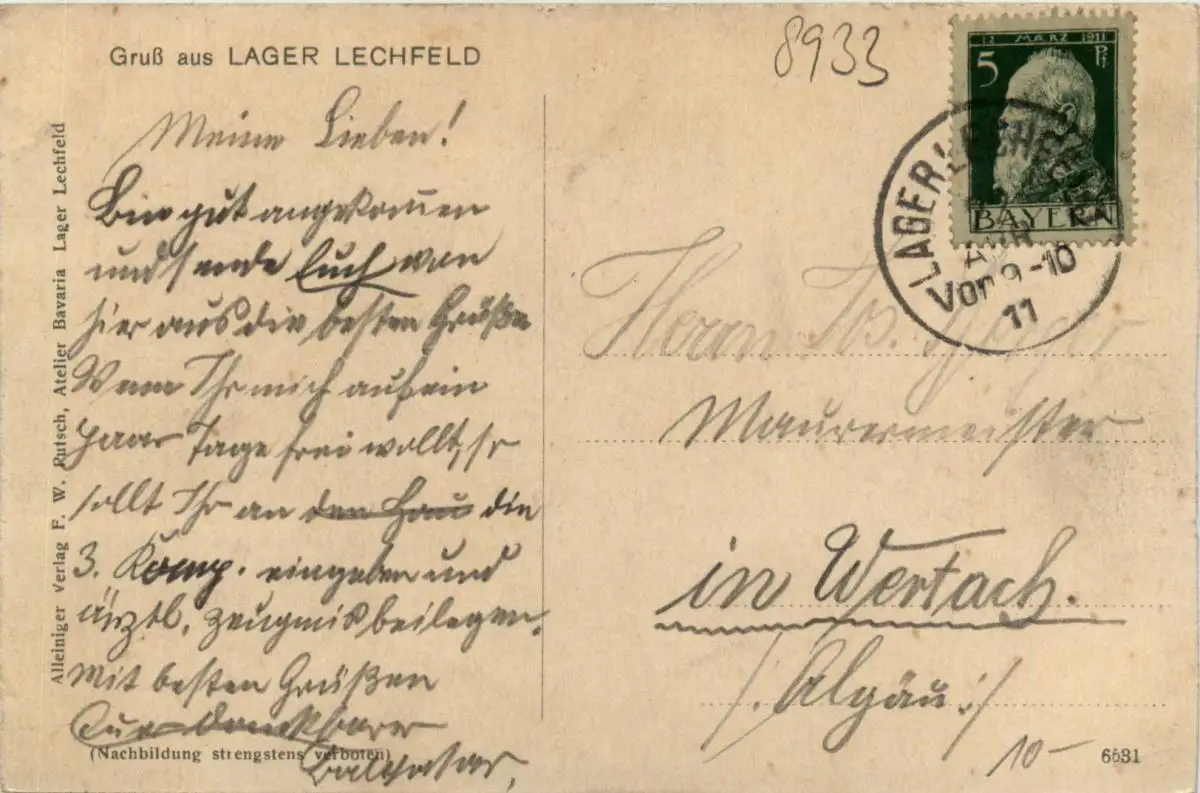 Gruß aus LAGER LECHFELD
8933
12 MÄRZ 1911
5 Pf.
BAYERN
LAGER LECHFELD
Vor 9-10
11
Meine Lieben!
Bin gut angekommen
und sende Euch von
hier aus die besten Grüße
Wenn Ihr mich auf ein
paar Tage frei wollt, so
sollt Ihr an den Hau die
3. Komp. eingeben und
ärztl. Zeugnis beilegen.
Mit besten Grüßen
Euer dankbarer
Balthasar,
Herrn Jos.
Maurermeister
in Wertach.
/: Algäu :/
10-
Alleiniger Verlag F. W. Rutsch, Atelier Bavaria Lager Lechfeld
(Nachbildung strengstens verboten)
6531